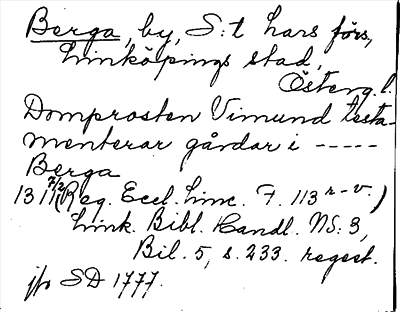 Berga, by, S:t Lars förs,
Linköpings stad,
Österg. l.
Domprosten Vimund testa-
menterar gårdar i -----
Berga
1311 7/2 (Reg. Eccl. Linc. F. 113 r-v.)
Link. Bibl. Handl. NS: 3,
Bil. 5, s. 233. regest.
jfr SD 1777.